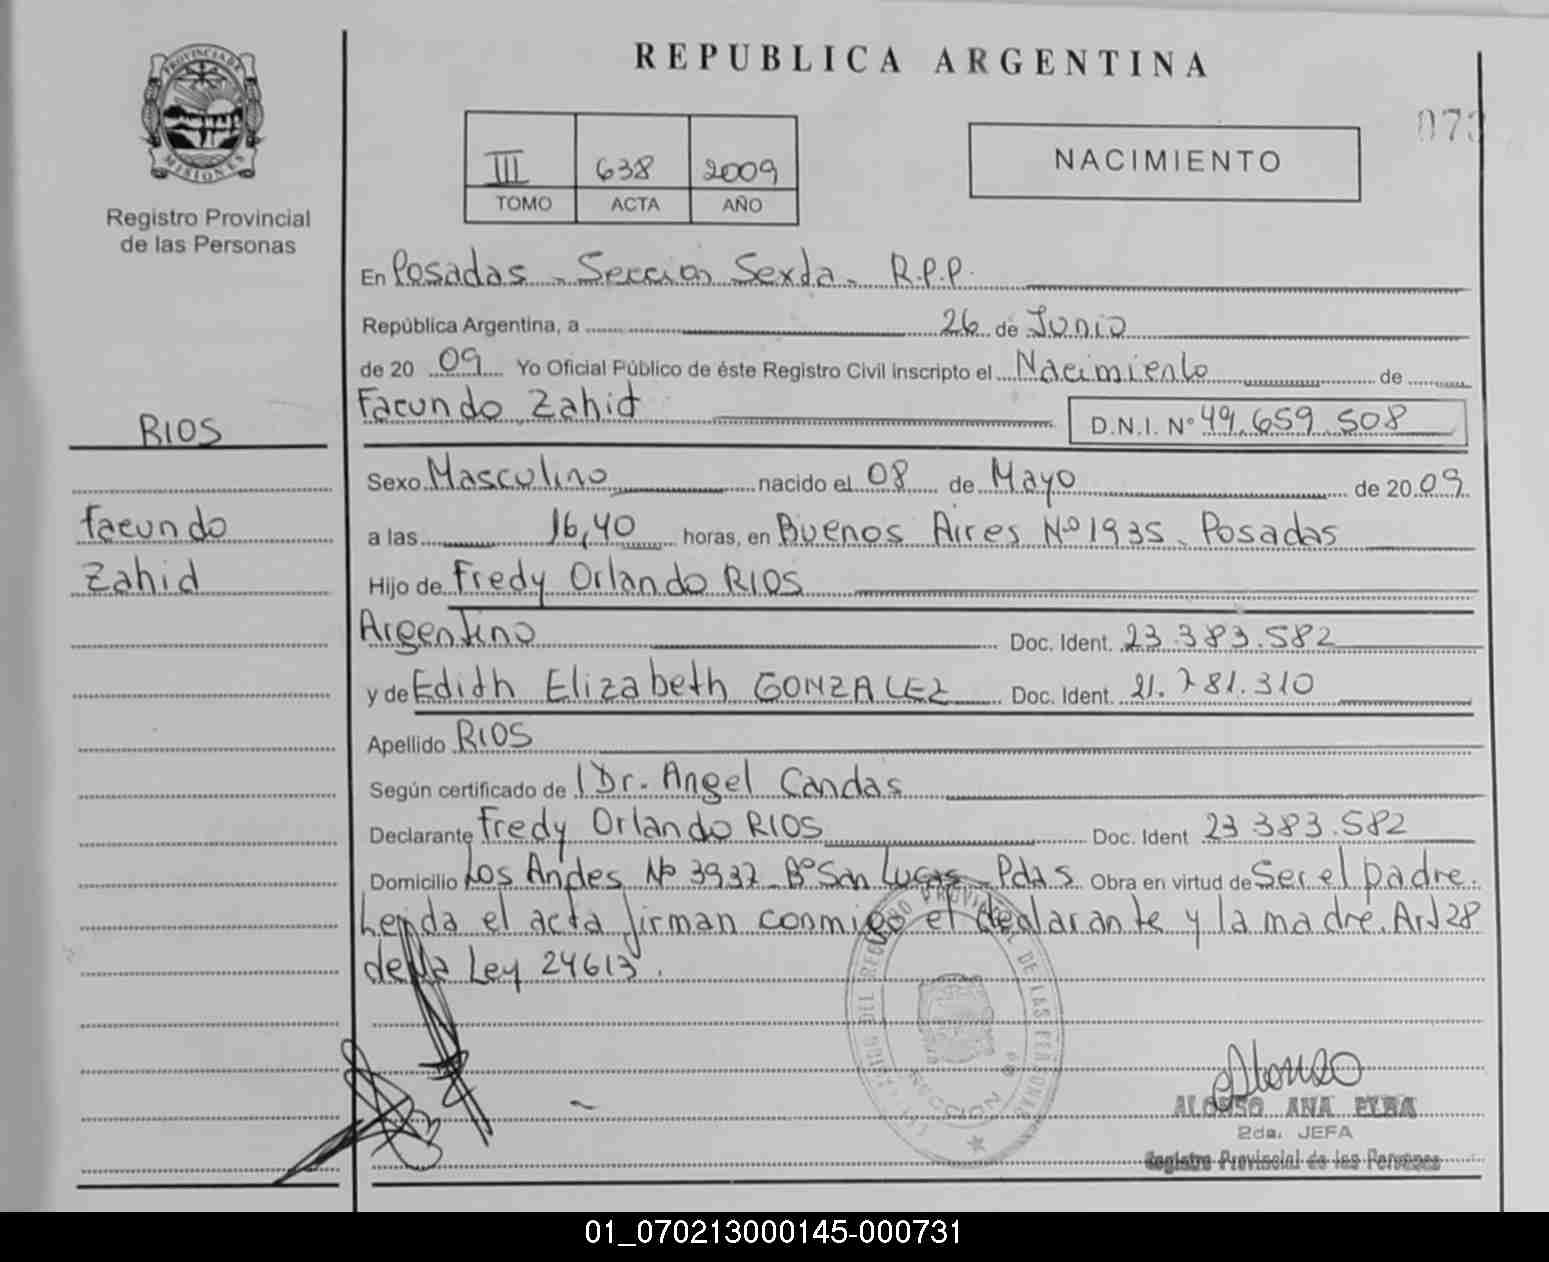 REPUBLICA ARGENTINA
PROVINCIA DE MISIONES
Registro Provincial
de las Personas
III 638 2009
TOMO ACTA AÑO
NACIMIENTO
073
En Posadas - Seccion Sexta - R.P.P.
República Argentina, a 26 de Junio
de 20 09 Yo Oficial Público de éste Registro Civil inscripto el Nacimiento de
Facundo Zahid
D.N.I. Nº 49.659.508
RIOS
Facundo
Zahid
Sexo Masculino nacido el 08 de Mayo de 20 09
a las 16,40 horas, en Buenos Aires Nº 1935 - Posadas
Hijo de Fredy Orlando RIOS
Argentino Doc. Ident. 23.383.582
y de Edith Elizabeth GONZALEZ Doc. Ident. 21.781.310
Apellido RIOS
Según certificado de Dr. Angel Candas
Declarante Fredy Orlando RIOS Doc. Ident 23 383.582
Domicilio Los Andes Nº 3937 - Bº San Lucas - Pdas Obra en virtud de Ser el padre.
Leida el acta firman conmigo el declarante y la madre. Art 28
de la Ley 24613.
Alonso
ALONSO ANA ELBA
2da. JEFA
Registro Provincial de las Personas
01_070213000145-000731